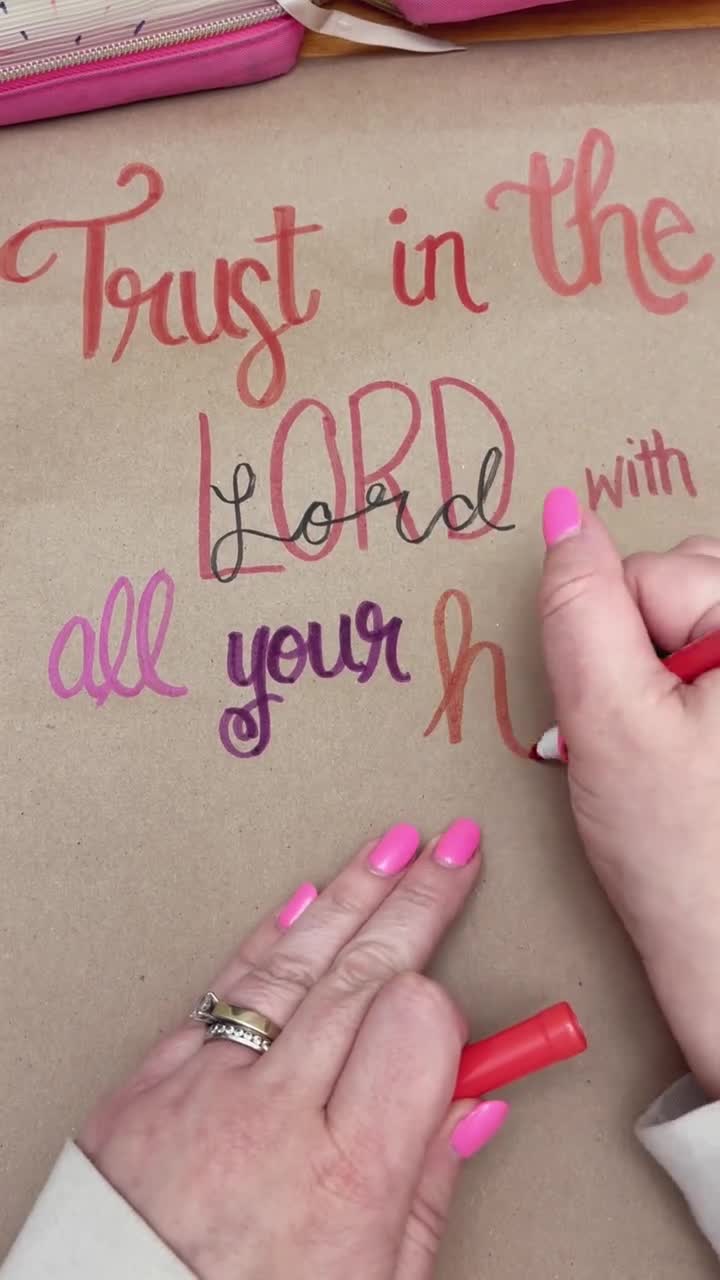 Trust in the
LORD
Lord with
all your h